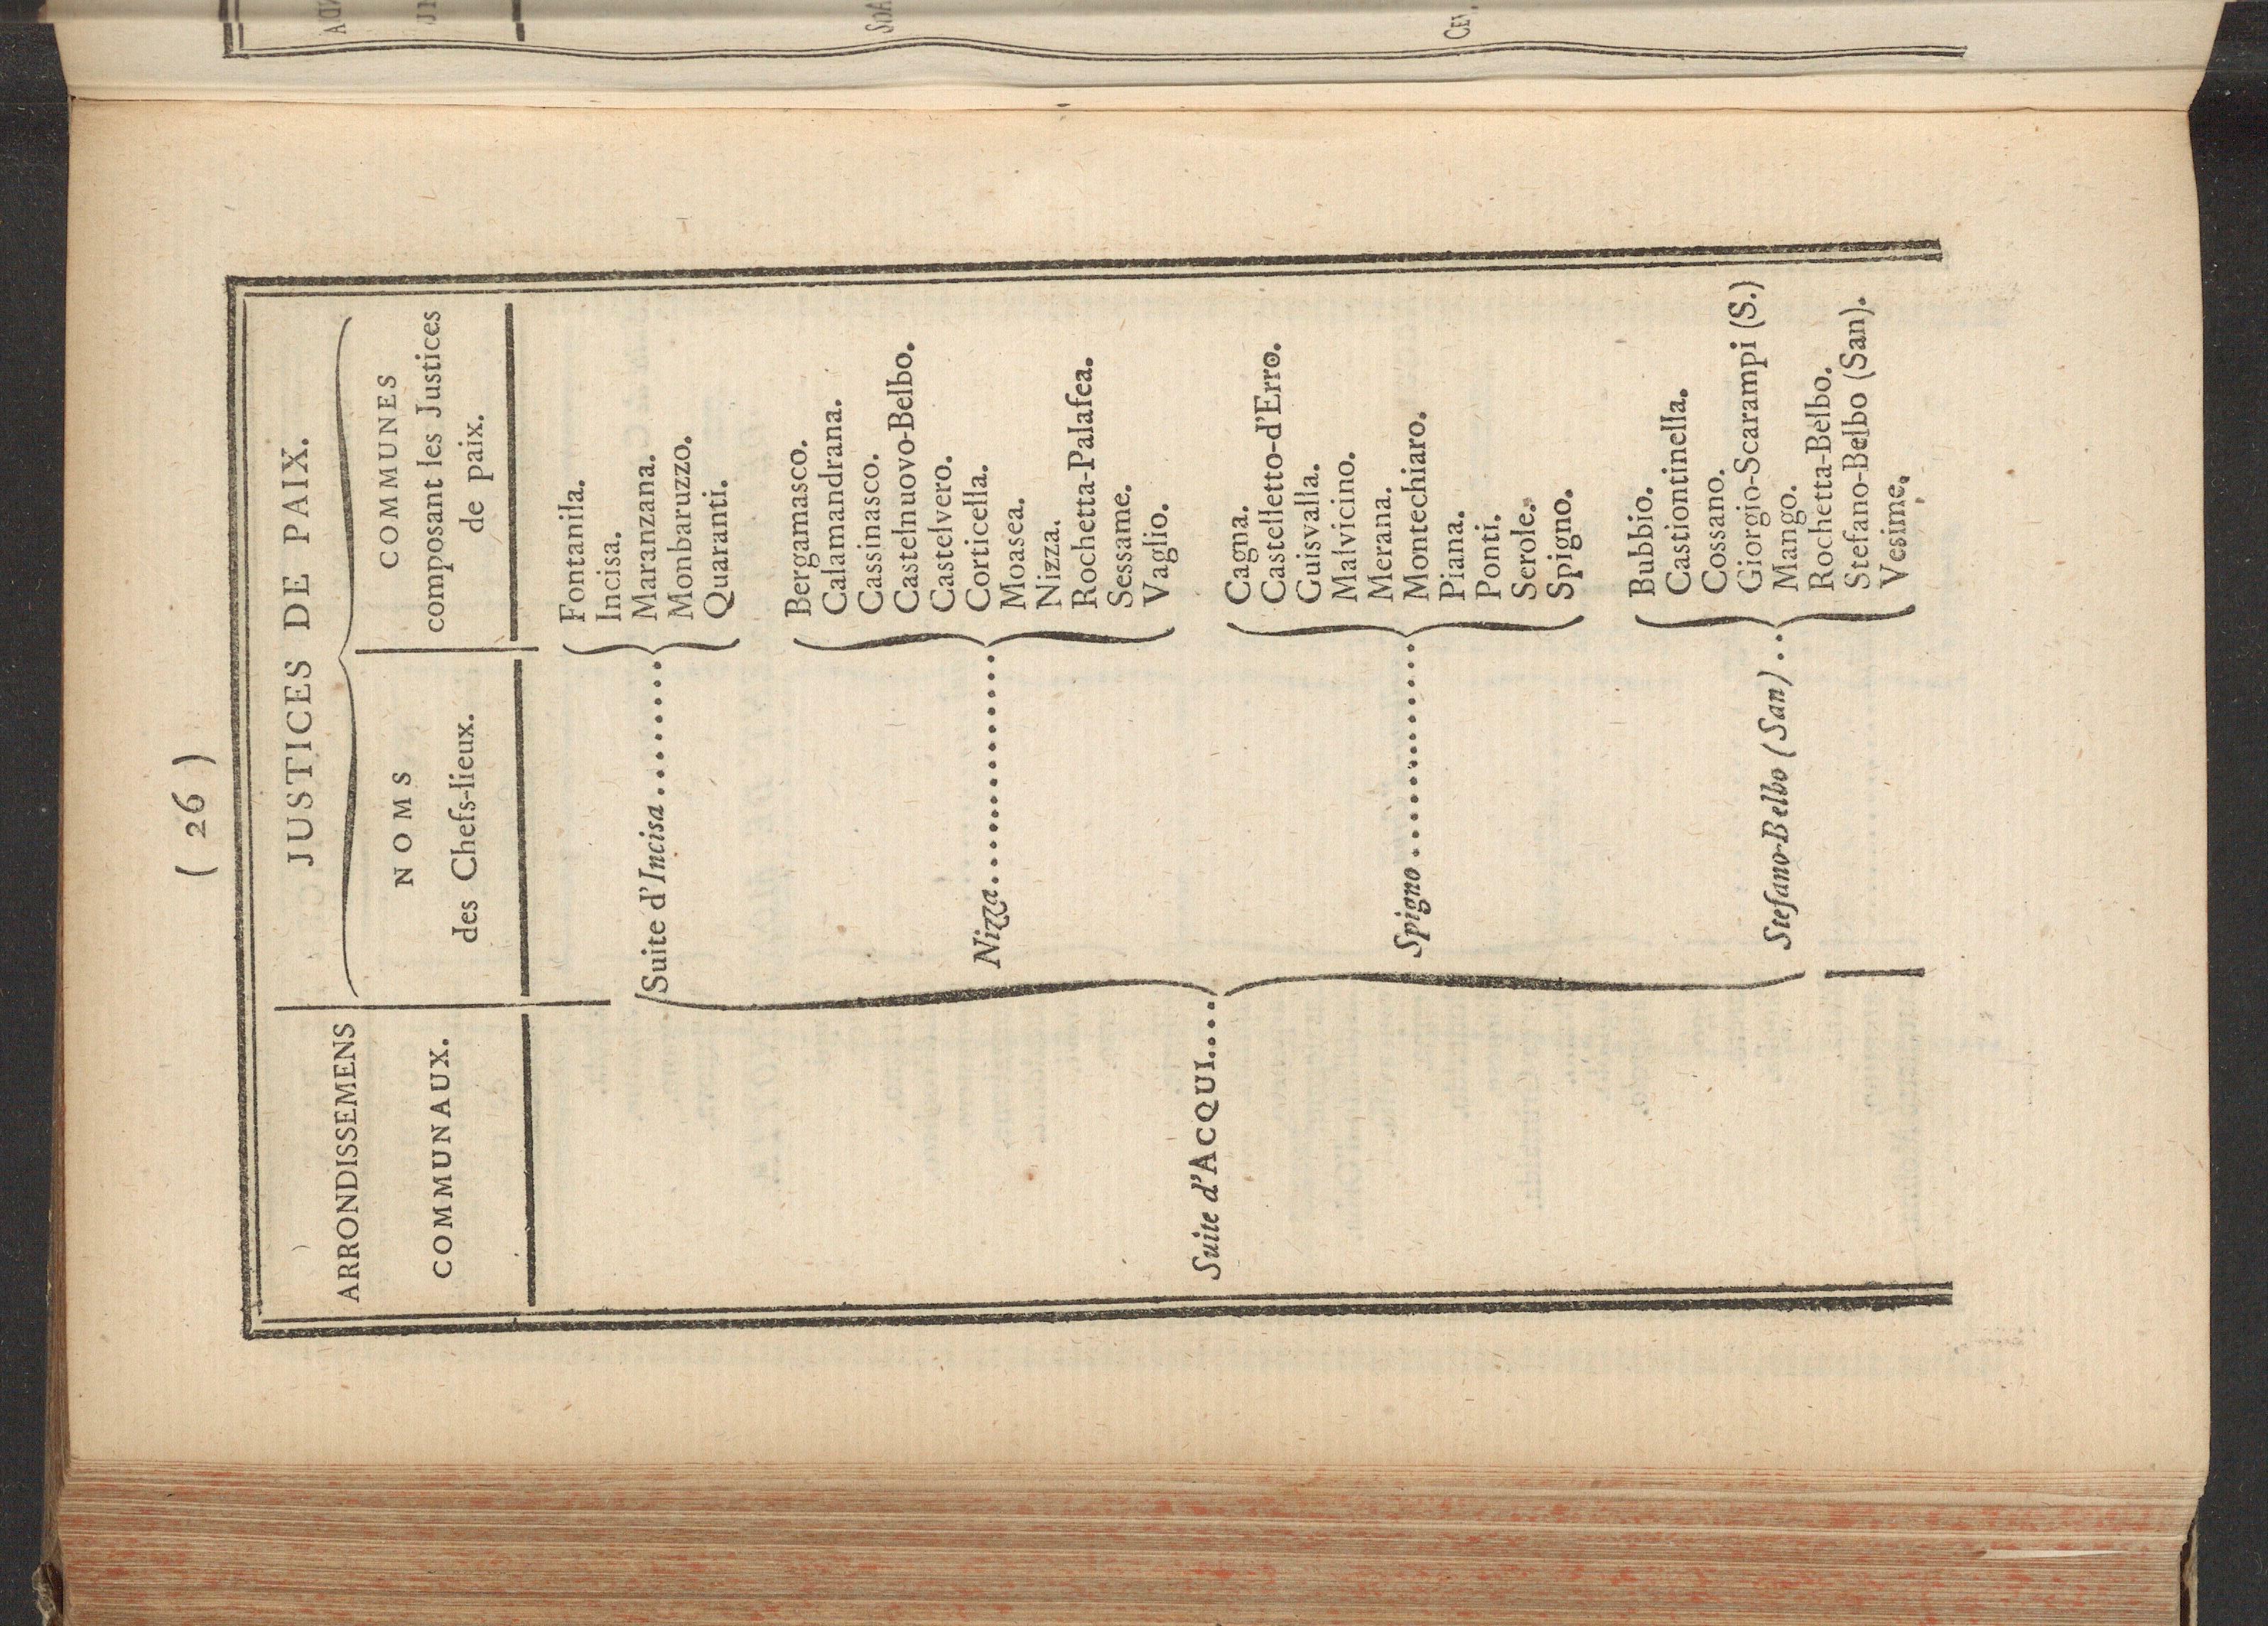 ( 26 )
ARRONDISSEMENS
COMMUNAUX.
JUSTICES DE PAIX.
NOMS
des Chefs-lieux.
COMMUNES
composant les Justices
de paix.
Suite d'ACQUI....
Suite d'Incisa..........
Fontanila.
Incisa.
Maranzana.
Monbaruzzo.
Quaranti.
Nizza................
Bergamasco.
Calamandrana.
Cassinasco.
Castelnuovo-Belbo.
Castelvero.
Corticella.
Moasea.
Nizza.
Rochetta-Palafea.
Sessame.
Vaglio.
Spigno...............
Cagna.
Castelletto-d'Erro.
Guisvalla.
Malvicino.
Merana.
Montechiaro.
Piana.
Ponti.
Serole.
Spigno.
Stefano-Belbo (San)...
Bubbio.
Castiontinella.
Cossano.
Giorgio-Scarampi (S.)
Mango.
Rochetta-Belbo.
Stefano-Belbo (San).
Vesime.